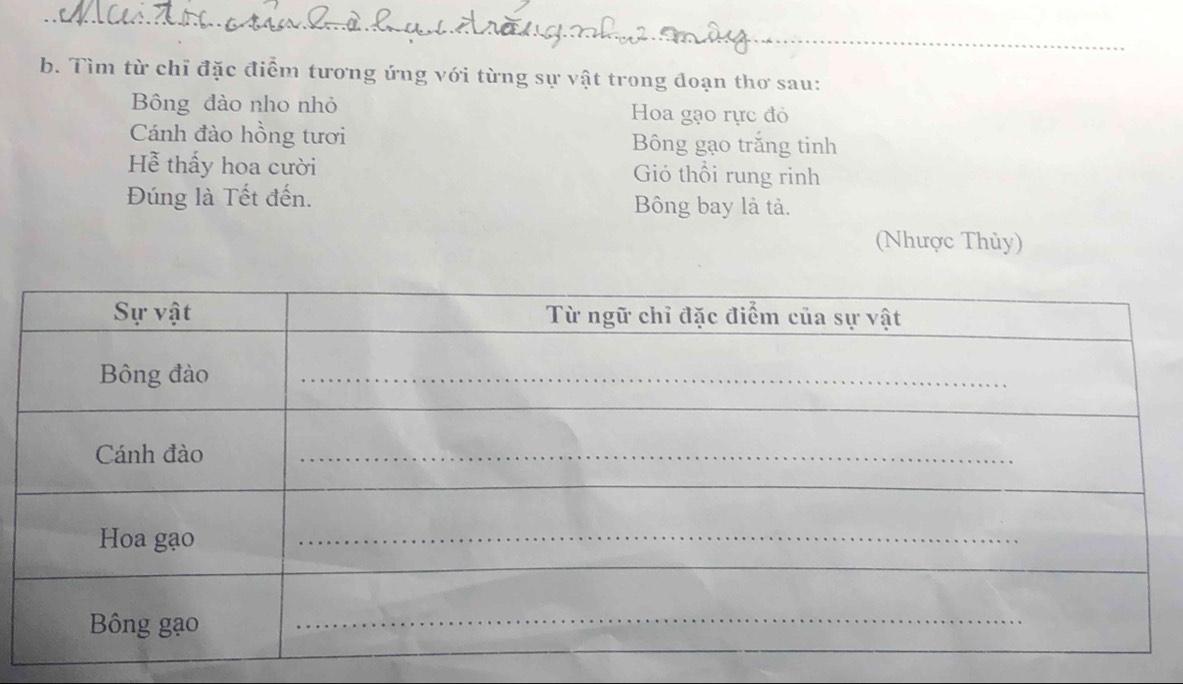 ..Mái tóc của bà bạc trắng như mây....
b. Tìm từ chỉ đặc điểm tương ứng với từng sự vật trong đoạn thơ sau:
Bông đào nho nhỏ
Cánh đào hồng tươi
Hễ thấy hoa cười
Đúng là Tết đến.
Hoa gạo rực đỏ
Bông gạo trắng tinh
Gió thổi rung rinh
Bông bay lả tả.
(Nhược Thủy)
Sự vật Từ ngữ chỉ đặc điểm của sự vật
Bông đào
Cánh đào
Hoa gạo
Bông gạo